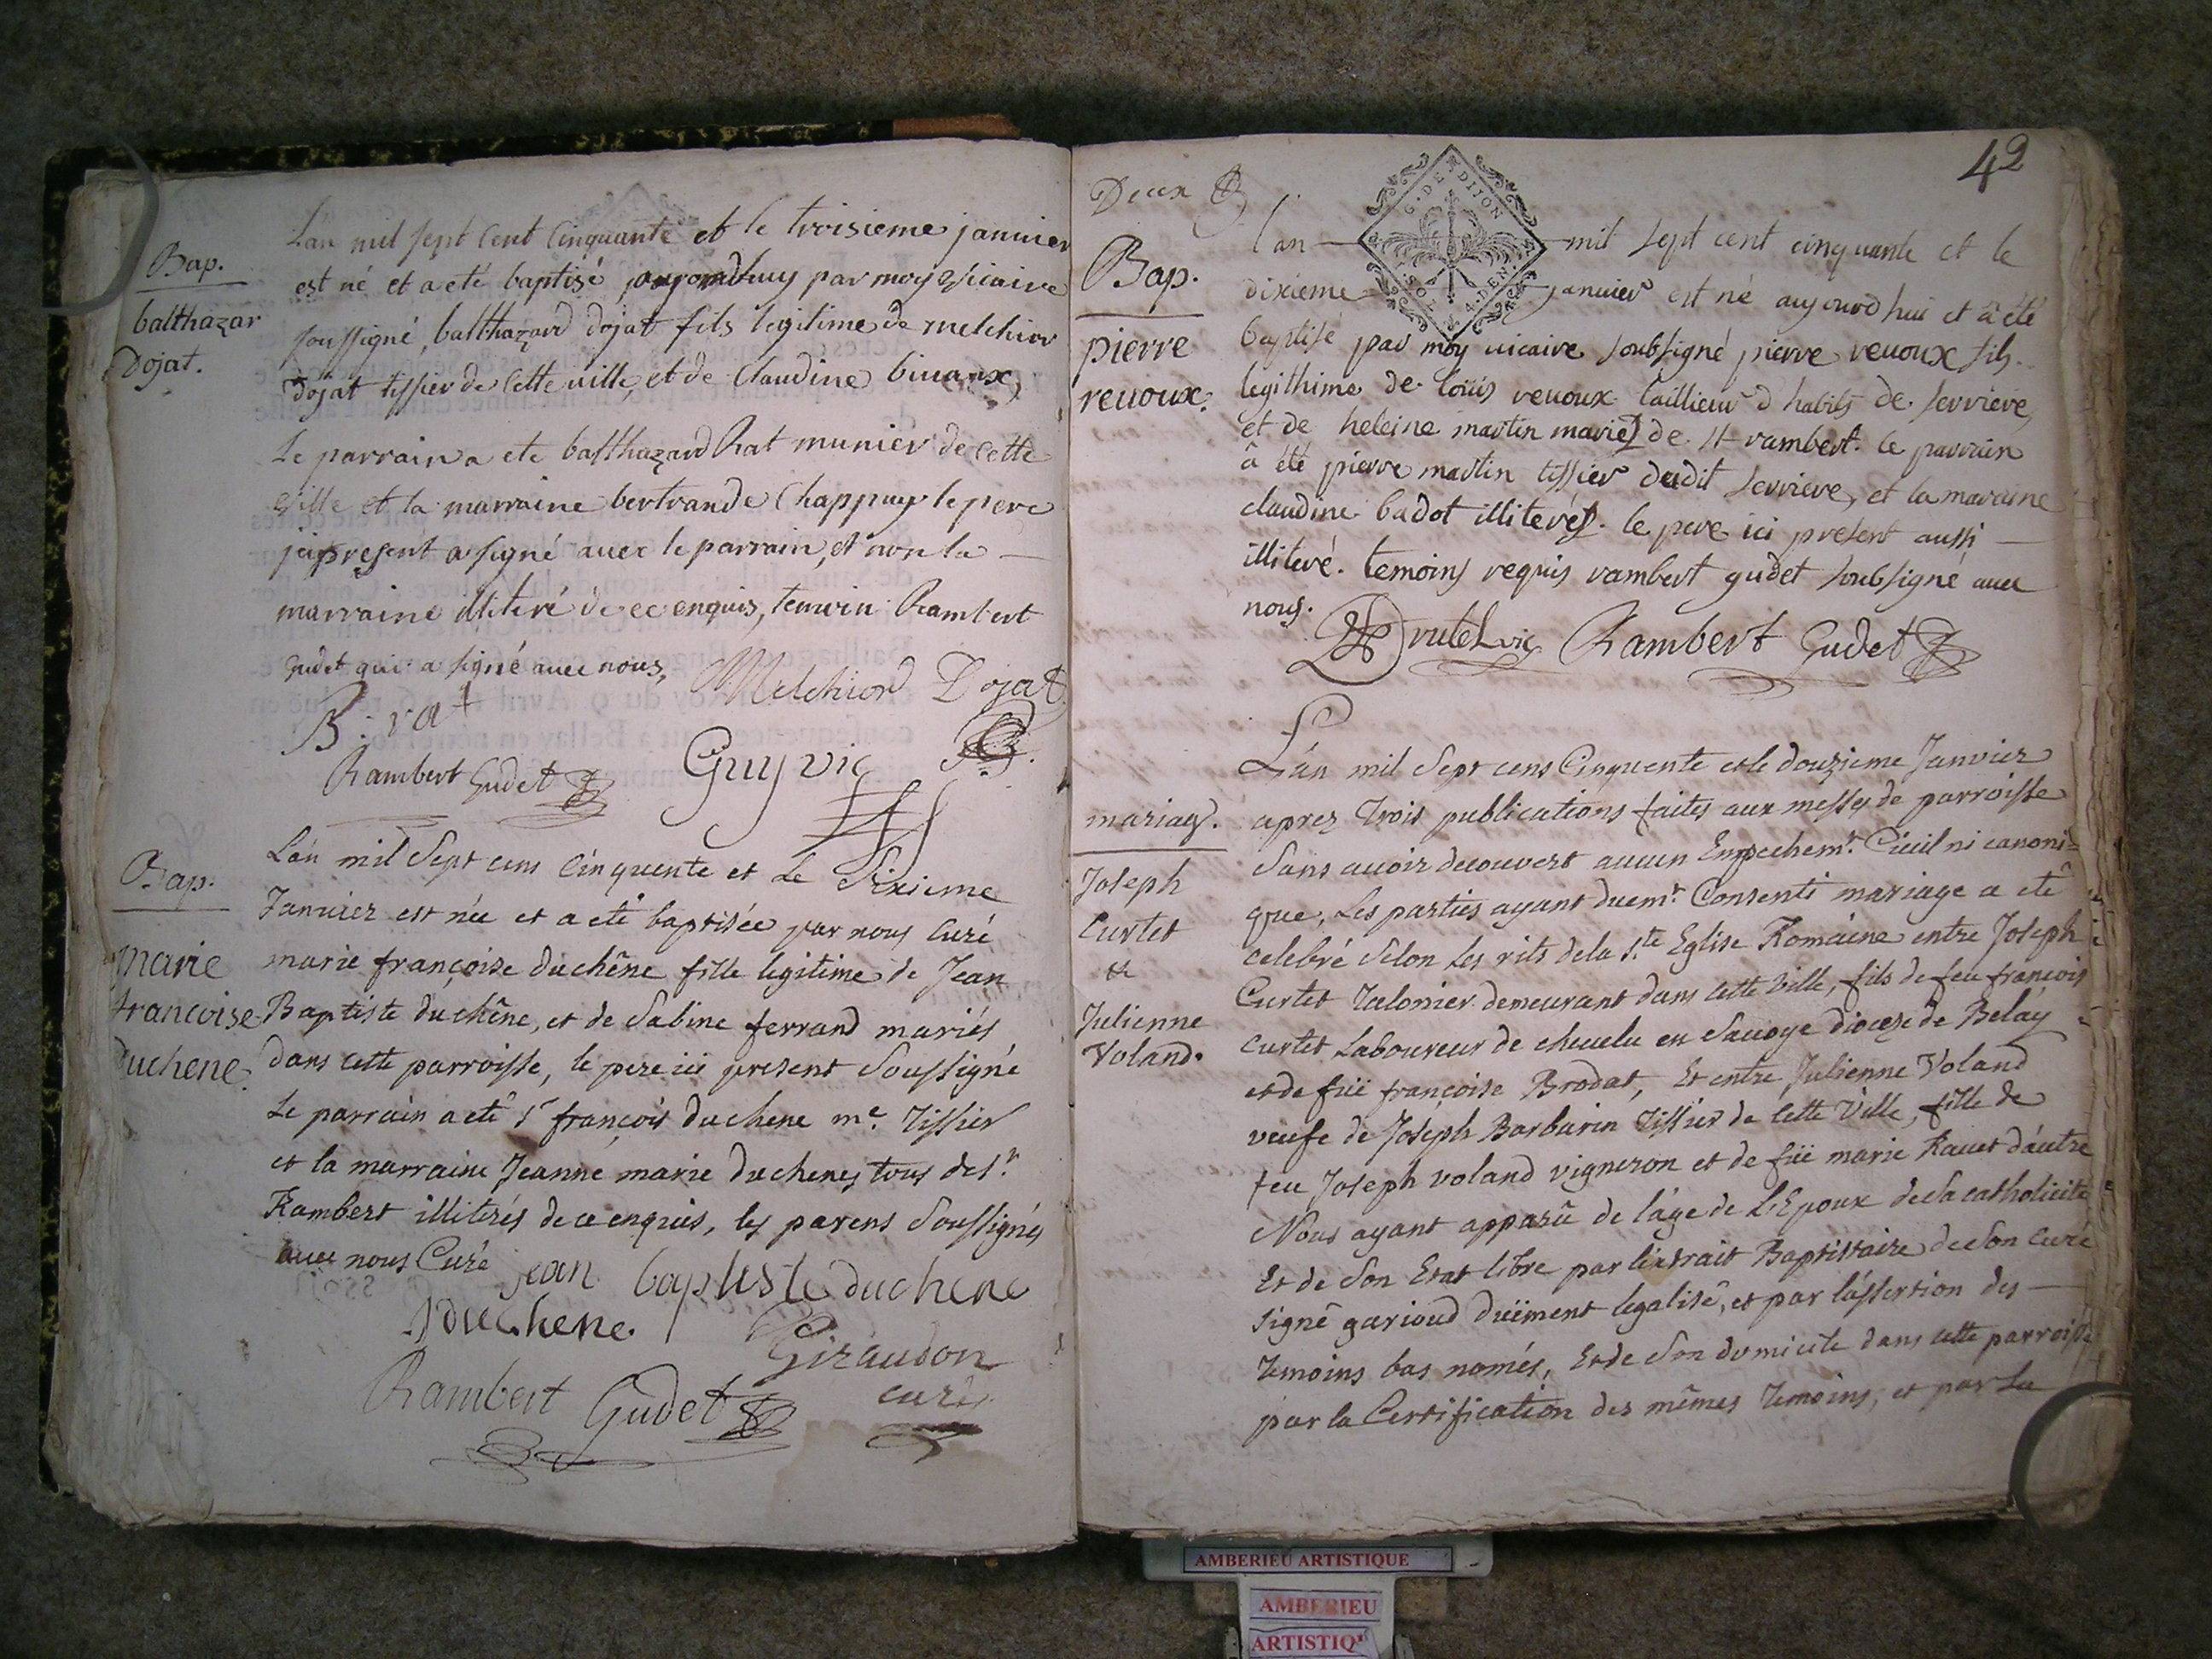 Bap.
balthazar
Dojat.
L'an mil sept cent cinquante et le troisieme januier
est né et a eté baptisé aujourdhuy par moy vicaire
soussigné, balthazard dojat fils legitime de melchior
dojat tissier de cette ville, et de Claudine biuaux
Le parrain a ete balthazard Rat munier de cette
ville et la marraine bertrande Chappuy le pere
ici present a signé auec le parrain, et non la
marraine illiteré de ce enquis, temoin Rambert
Gudet qui a signé auec nous,
Melchior Dojat
B : rat
Rambert Gudet
Guy vic
Bap.
marie
francoise
duchene.
L'an mil Sept cens Cinquente et Le Sixieme
Januier est née et a eté baptisée par nous Curé
marie françoise duchêne fille legitime de Jean
Baptiste duchêne, et de Sabine ferrand mariés
dans cette parroisse, le pere ici present Soussigné
Le parrain a eté sr françois duchene me. Tissier
et la marraine Jeanne marie duchenes tous de St.
Rambert illiterés de ce enquis, les parens Soussignés
auec nous Curé
jean baptiste duchene
duchene.
Giraudon
curé
Rambert Gudet
42
Deux
G. DE DIJON
Bap.
pierre
reuoux.
l'an mil sept cent cinquante et le
dixieme januier est né aujourdhui et a été
baptisé par moy uicaire soubsigné pierre reuoux fils
legithime de loüis reuoux tailleur d habits de serriere,
et de heleine martin mariés de St rambert. le parrain
â été pierre martin tissier dudit serriere, et la maraine
claudine badot illiterés. le pere ici present aussi
illiteré. temoins requis rambert gudet soubsigné auec
nous.
Rambert Gudet
mariag.
Joseph
Curtet
&
Julienne
Voland.
L'an mil Sept cens Cinquente et le douzieme Janvier
aprez trois publications faites aux messes de parroisse
Sans auoir decouvert aucun Empechemt. Ciuil ni canoni=
que, Les parties ayant duemt. Consenti mariage a eté
celebré Selon Les rits de la Ste Eglise Romaine entre Joseph
Curtet Talonier demeurant dans cette Ville, fils de feu françois
curtet Laboureur de cheuelu en Sauoye dioceze de Belay
et de füe françoise Brodat, Et entre Julienne Voland
veufe de Joseph Barbarin Tissier de cette Ville, fille de
feu Joseph voland vigneron et de füe marie Rauet d'autre
Nous ayant apparû de l'âge de L'Epoux de Sa catholicité
Et de Son Etat libre par l'extrait Baptistaire de Son Curé
Signé garioud düement legalisé, et par l'assertion des
temoins bas només, Et de Son domicile dans cette parroisse
par la Certification des mêmes temoins, et par La
AMBERIEU ARTISTIQUE
AMBERIEU
ARTISTIQ